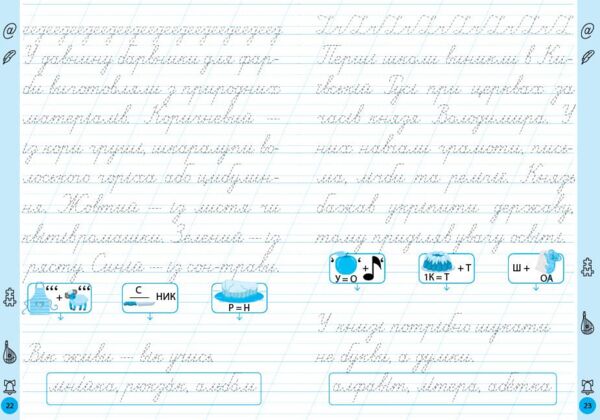 У давнину барвники для фар-
би виготовляли з природних
матеріалів. Коричневий —
із кори груші, шкаралупи во-
лоського горіха або цибулин-
ня. Жовтий — із листя чи
квітів ромашки. Зелений — із
рясту. Синій — із сон-трави.
“ + “““
С
НИК
Р = Н
Вік живи — вік учись.
лінійка, рюкзак, альбом
22
Перші школи виникли в Ки-
ївській Русі при церквах за
часів князя Володимира. У
них навчали грамоти, пись-
ма, лічби та релігії. Князь
бажав укріпити державу,
тому приділяв увагу освіті.
’ +
У = О
1К = Т
+ Т
Ш +
ОА
У книзі потрібно шукати
не букви, а думки.
алфавіт, літера, абетка
23